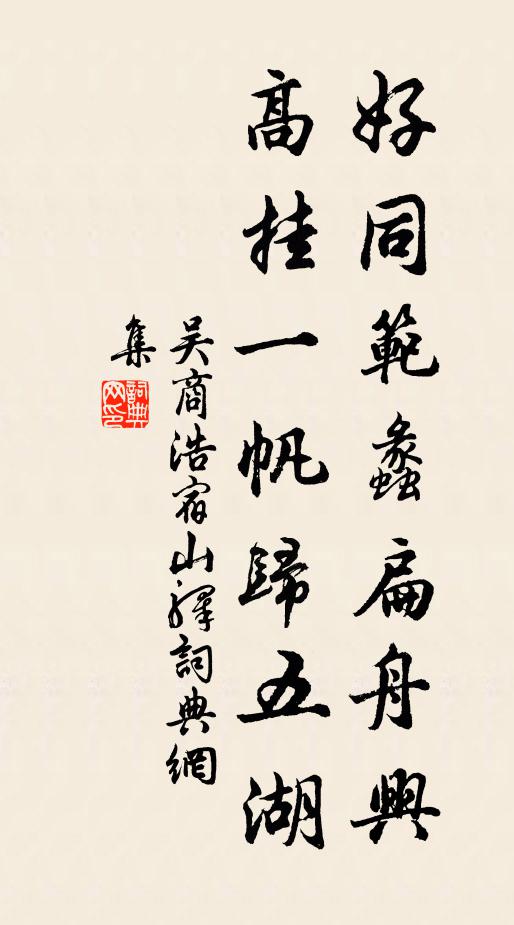 好同範蠡扁舟興
高挂一帆歸五湖
吴商浩宿山驛詞典網
集
詞典网印